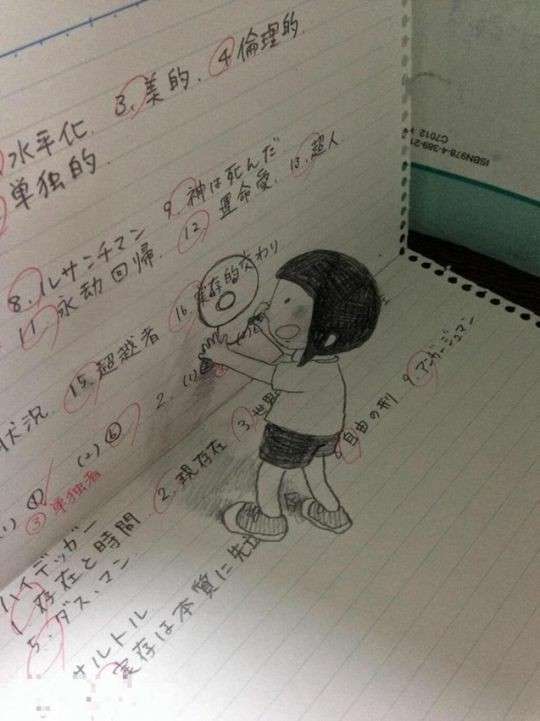 水平化. 3.美的. 4 倫理的
単独的
8.ルサンチマン 9.神は死んだ
11.永劫回帰. 12 運命愛. 13.超人
状況 15.超越者 16.実存的交わり
(1) ④ (2) ⑥ 2. (1)
③ 単独者
ハイデッガー
1.存在と時間 2.現存在 3.世界
5.ダス・マン
サルトル
実存は本質に先立 自由の刑 9.アンガージュマン
ISBN978-4-389-21
C7012